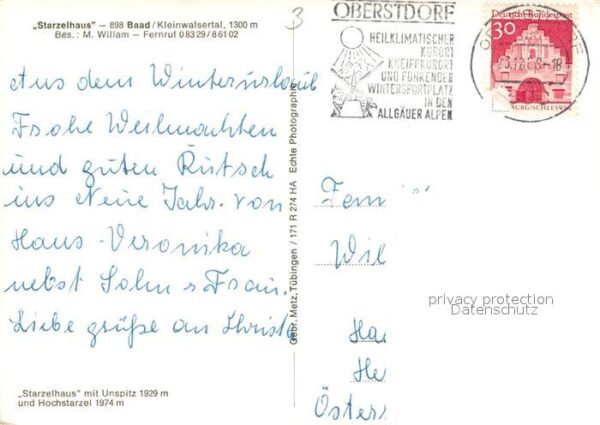 „Starzelhaus" — 898 Baad / Kleinwalsertal, 1300 m
Bes.: M. Willam – Fernruf 0 83 29 / 8 61 02
Aus dem Winterurlaub
Frohe Weihnachten
und guten Rutsch
ins Neue Jahr. von
Haus-Veronika
nebst Sohn u Frau.
Liebe grüße an Christ
„Starzelhaus" mit Unspitz 1929 m
und Hochstarzel 1974 m
Gebr. Metz, Tübingen / 171 R 274 HA Echte Photographie
3
OBERSTDORF
HEILKLIMATISCHER
KURORT
KNEIPPKURORT
UND FÜHRENDER
WINTERSPORTPLATZ
IN DEN
ALLGÄUER ALPEN
Deutsche Bundespost
30
Fam
Wil
Ha
He
Öster
privacy protection
Datenschutz